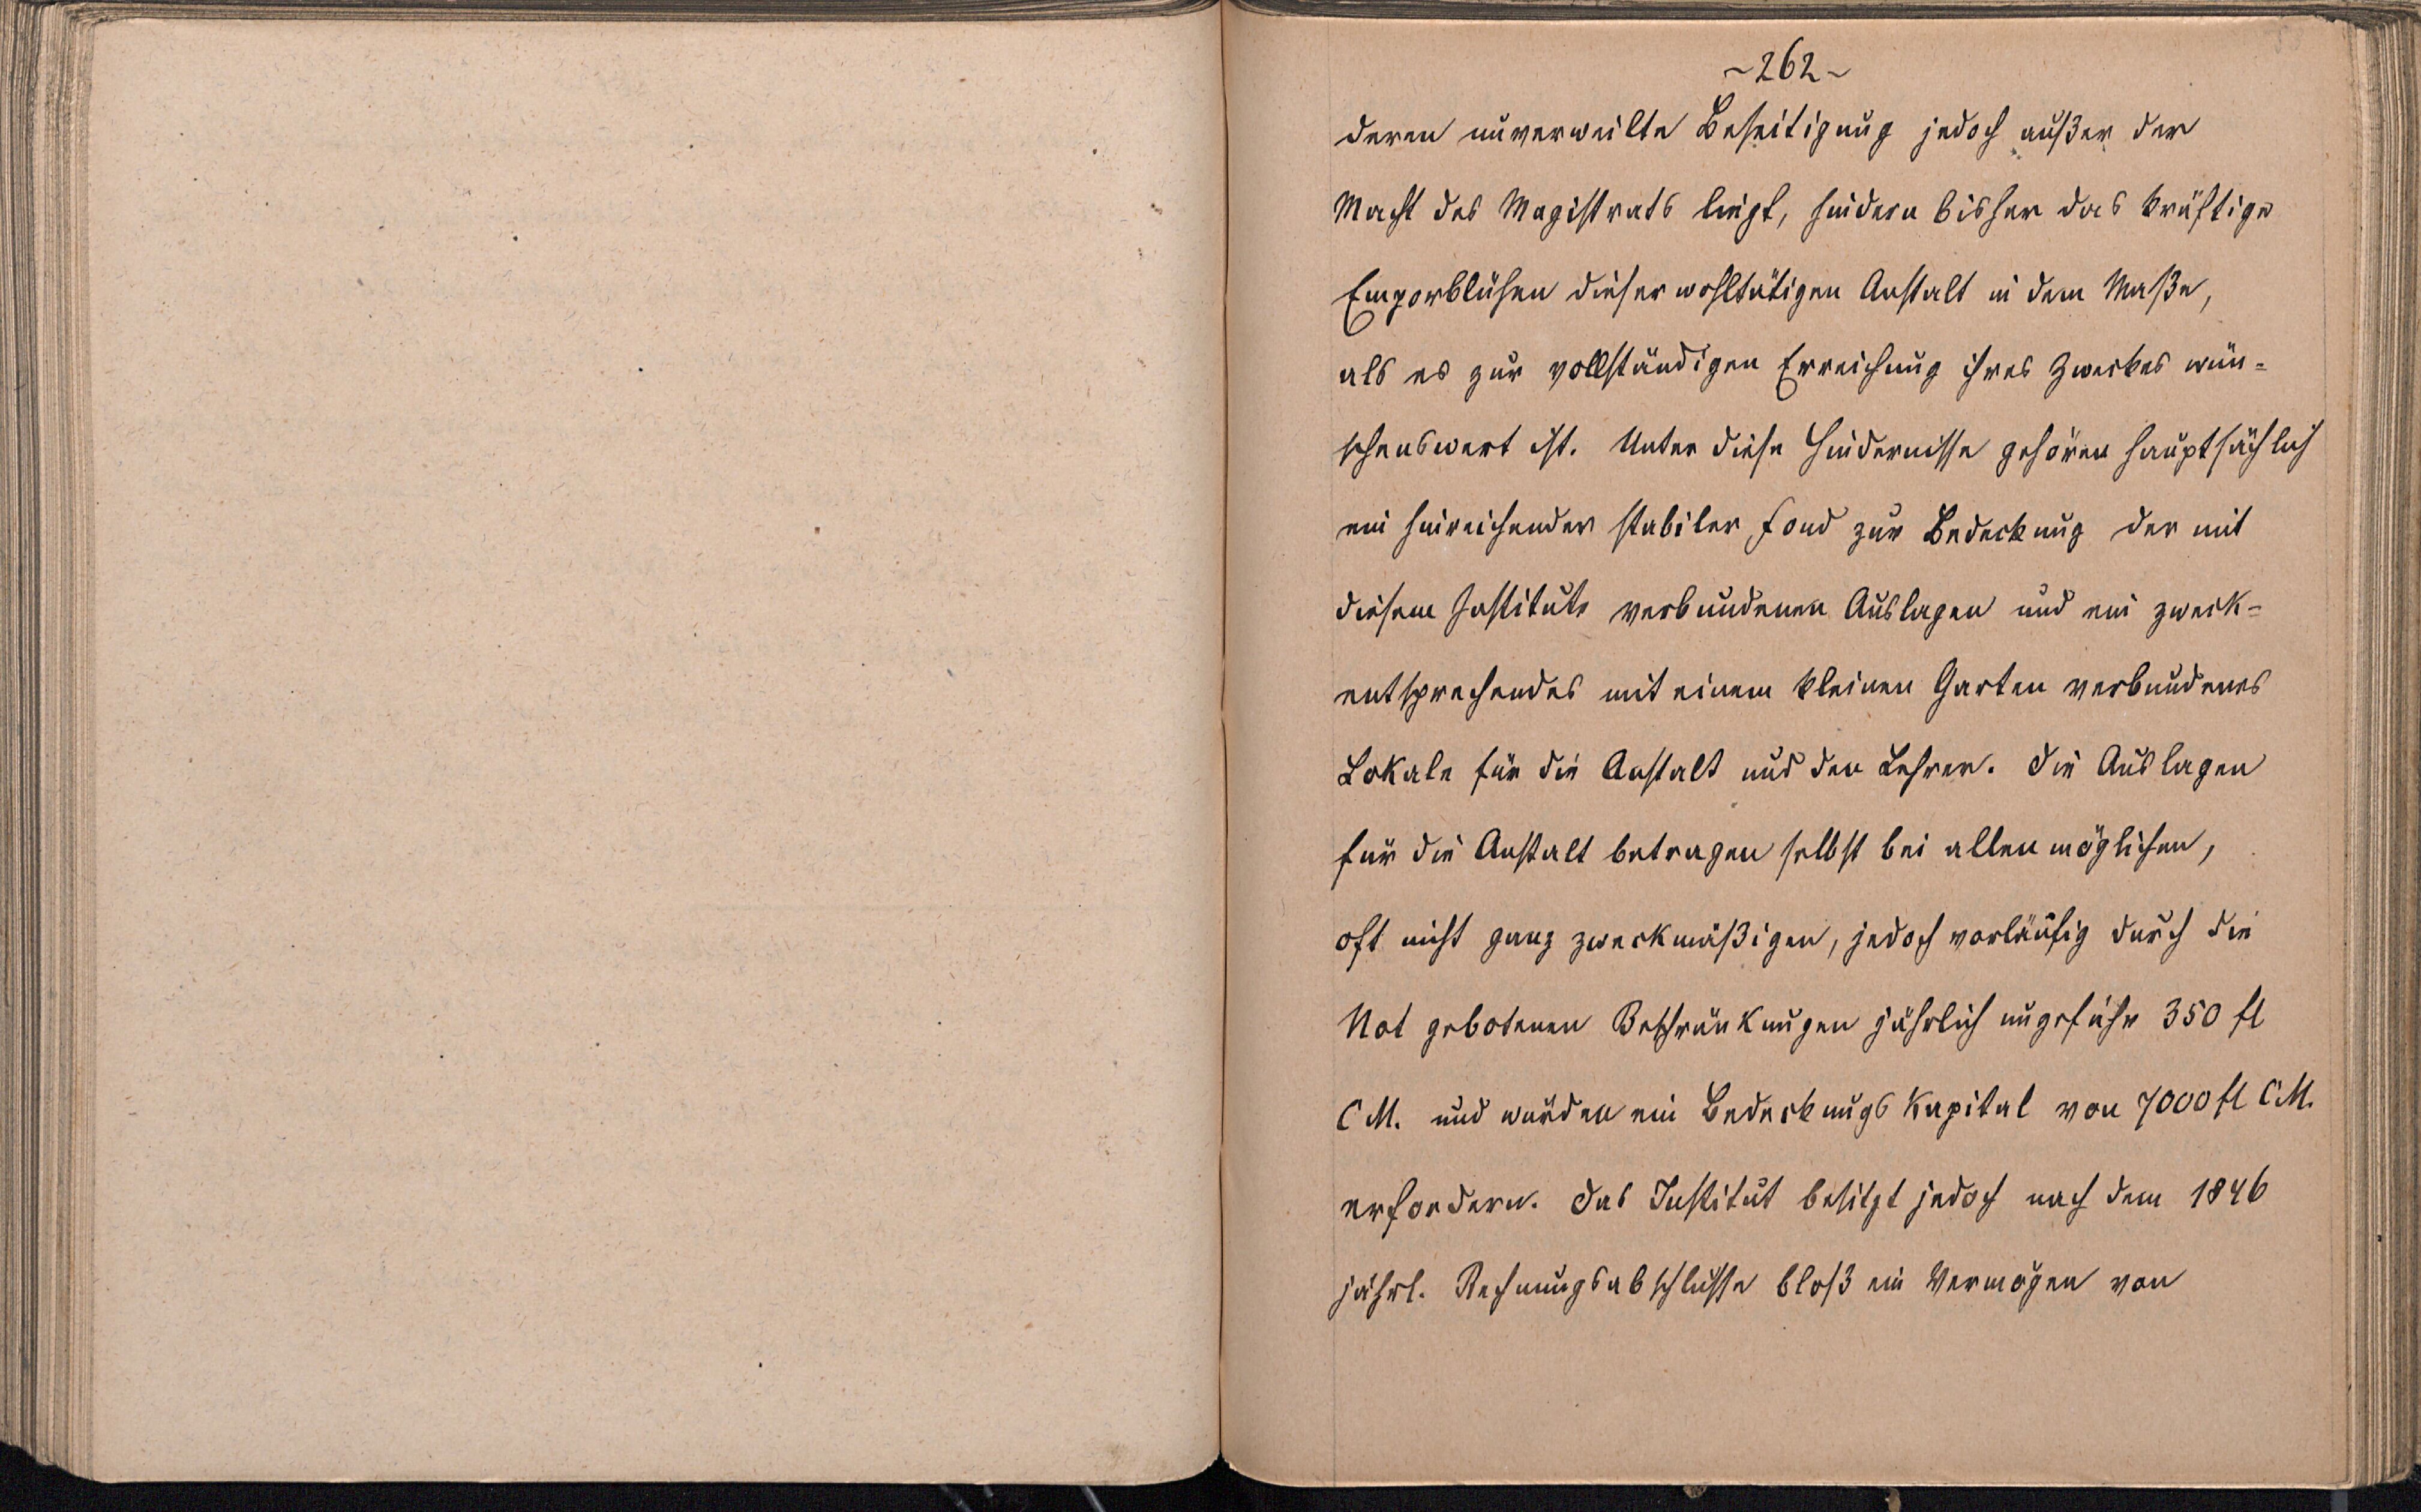 ~262~
deren unverweilte Beseitigung jedoch außer der
Macht des Magistrats liegt, hindern bisher das kräftige
Emporblühen dieser wohltätigen Anstalt in dem Maße,
als es zur vollständigen Erreichung ihres Zweckes wün-
schenswert ist. Unter diese Hindernisse gehören hauptsächlich
ein hinreichender stabiler Fond zur Bedeckung der mit
diesem Institute verbundenen Auslagen und ein zweck-
entsprechendes mit einem kleinen Garten verbundenes
Lokale für die Anstalt und den Lehrer. Die Auslagen
für die Anstalt betragen selbst bei allen möglichen,
oft nicht ganz zweckmäßigen, jedoch vorläufig durch die
Not gebotenen Beschränkungen jährlich ungefähr 350 fl
CM. und würden ein Bedeckungs Kapital von 7000 fl CM.
erfordern. Das Institut besitzt jedoch nach dem 1846
jährl. Rechnungsabschlusse bloß ein Vermögen von